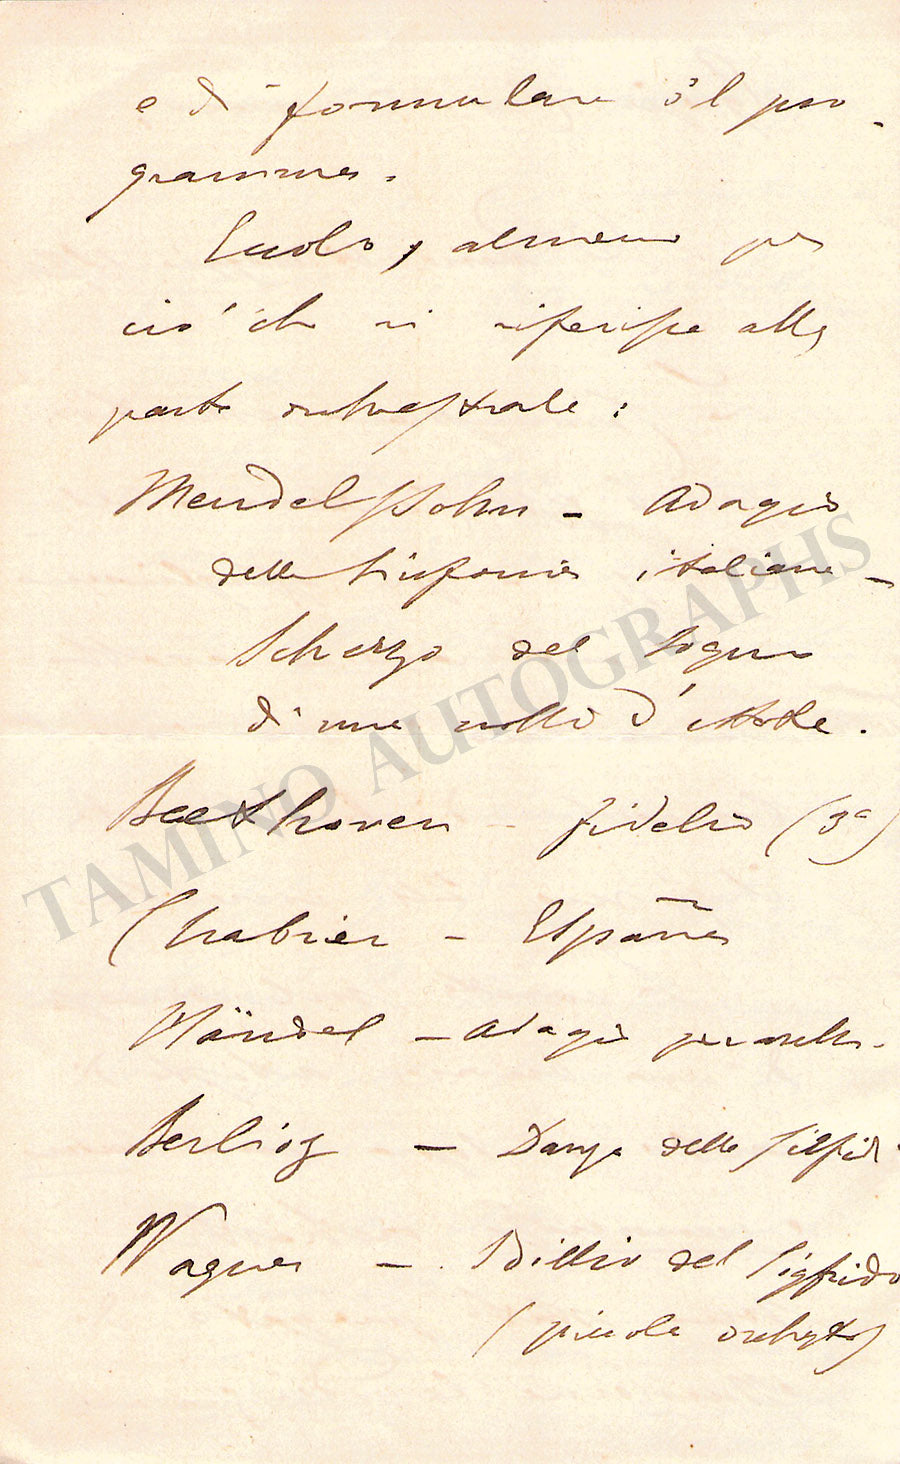 e di formulare il pro-
gramma.
Eccolo, almeno per
ciò che si riferisce alla
parte orchestrale:
Mendelssohn – Adagio
della Sinfonia italiana –
Scherzo del Sogno
di una notte d'estate.
Beethoven – Fidelio (3ª)
Chabrier – España
Händel – Adagio per archi.
Berlioz – Danza delle Silfidi
Wagner – Idillio del Sigfrido
(piccola orchestra)
TAMINO AUTOGRAPHS